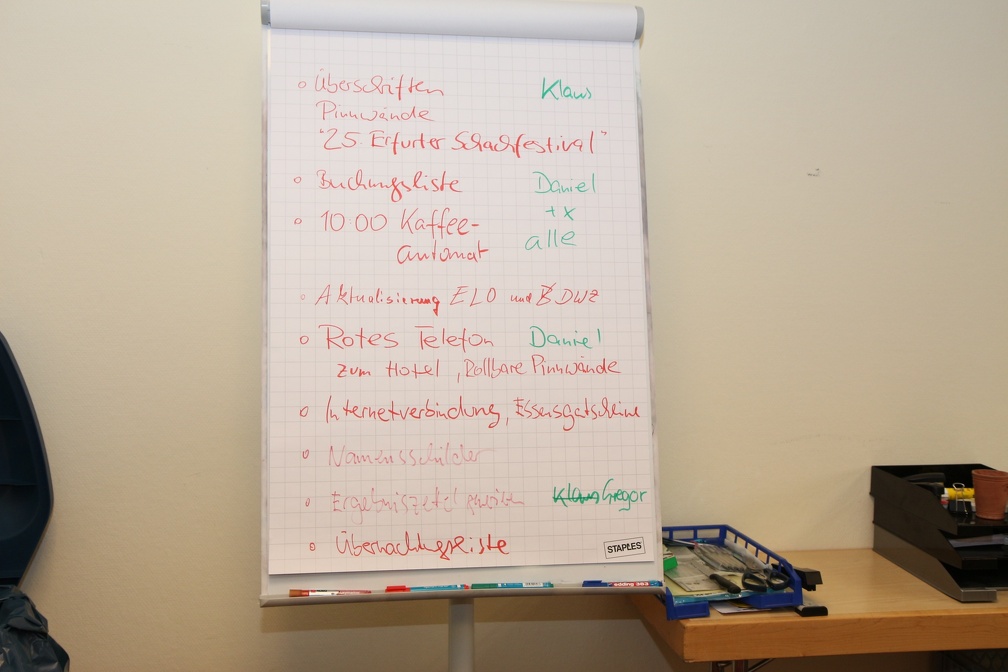 Überschriften Klaus
Pinnwände
"25. Erfurter Schachfestival"
Buchungsliste Daniel
+ x
10.00 Kaffee- alle
automat
Aktualisierung ELO und DWZ
Rotes Telefon Daniel
zum Hotel, Rollbare Pinnwände
Internetverbindung, Essensgutscheine
Namensschilder
Ergebniszettel Klaus Gregor
Übernachtungsliste
STAPLES
edding 363